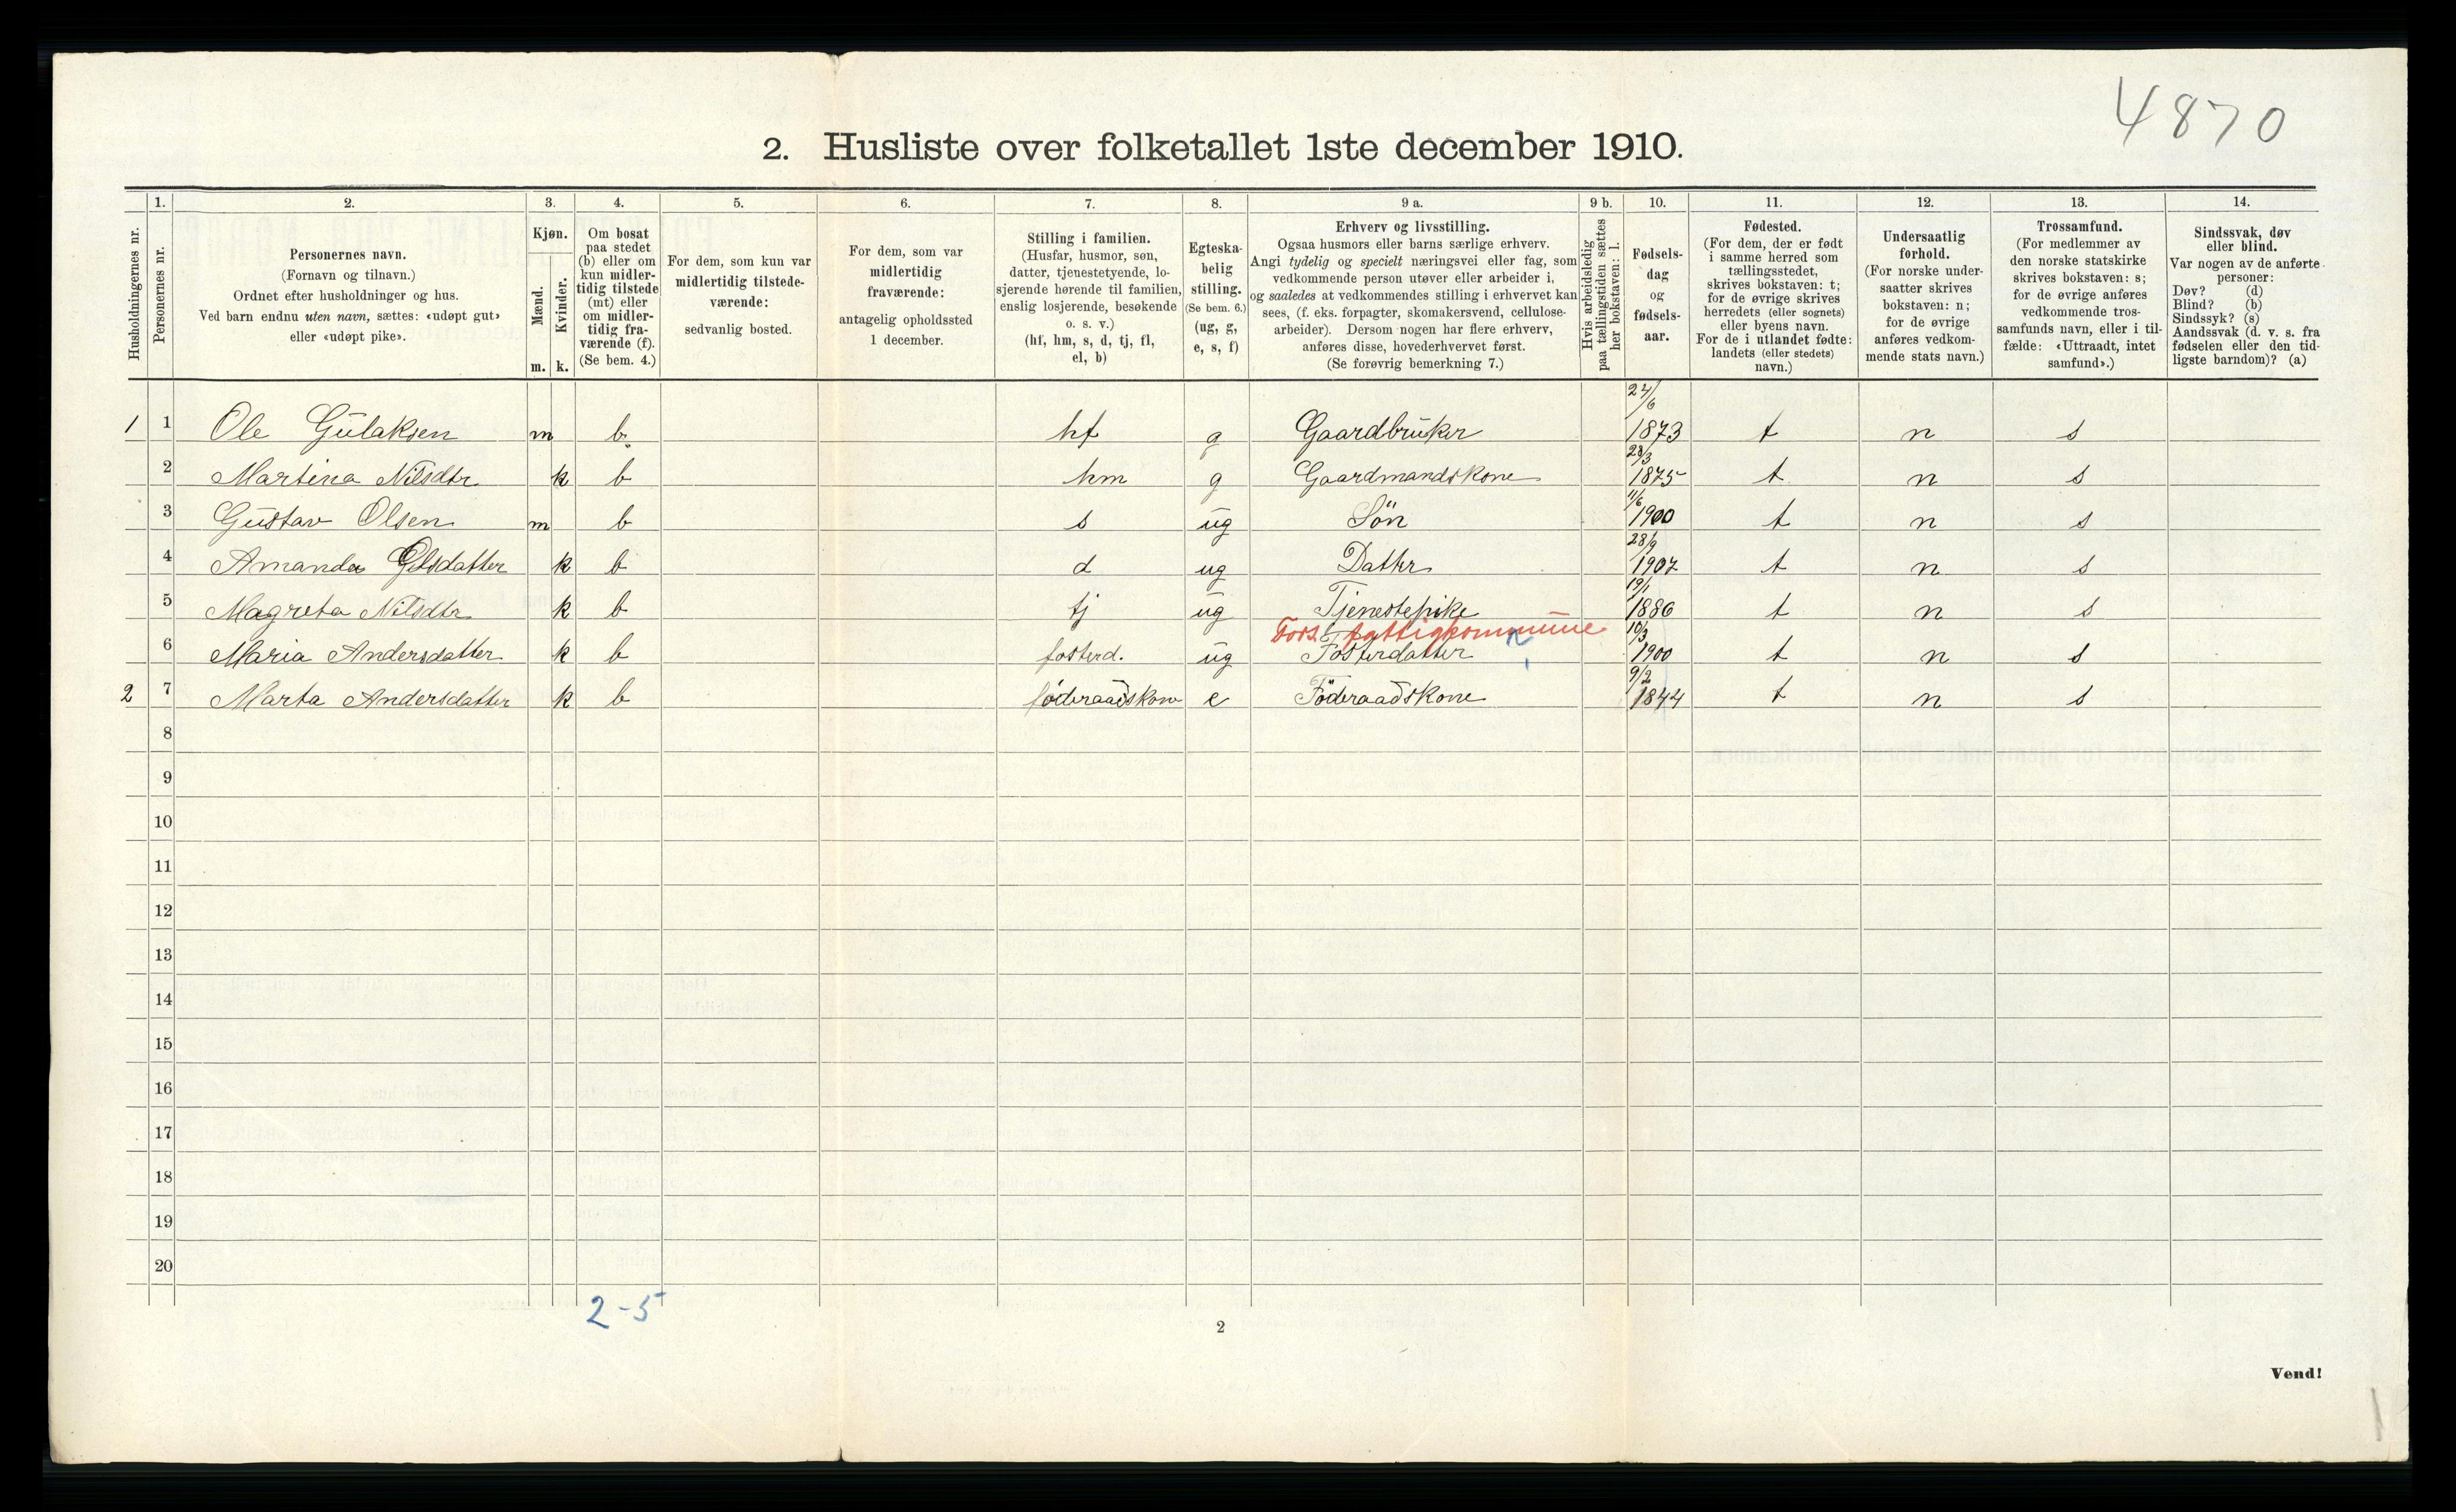 4870
2. Husliste over folketallet 1ste december 1910.
1. 2. 3. 4. 5. 6. 7. 8. 9 a. 9 b. 10. 11. 12. 13. 14.
Husholdningernes nr.
Personernes nr.
Personernes navn.
(Fornavn og tilnavn.)
Ordnet efter husholdninger og hus.
Ved barn endnu uten navn, sættes: «udøpt gut»
eller «udøpt pike».
Kjøn.
Mænd.
Kvinder.
m. k.
Om bosat
paa stedet
(b) eller om
kun midler-
tidig tilstede
(mt) eller
om midler-
tidig fra-
værende (f).
(Se bem. 4.)
For dem, som kun var
midlertidig tilstede-
værende:
sedvanlig bosted.
For dem, som var
midlertidig
fraværende:
antagelig opholdssted
1 december.
Stilling i familien.
(Husfar, husmor, søn,
datter, tjenestetyende, lo-
sjerende hørende til familien,
enslig losjerende, besøkende
o. s. v.)
(hf, hm, s, d, tj, fl,
el, b)
Egteska-
belig
stilling.
(Se bem. 6.)
(ug, g,
e, s, f)
Erhverv og livsstilling.
Ogsaa husmors eller barns særlige erhverv.
Angi tydelig og specielt næringsvei eller fag, som
vedkommende person utøver eller arbeider i,
og saaledes at vedkommendes stilling i erhvervet kan
sees, (f. eks. forpagter, skomakersvend, cellulose-
arbeider). Dersom nogen har flere erhverv,
anføres disse, hovederhvervet først.
(Se forøvrig bemerkning 7.)
Hvis arbeidsledig
paa tællingstiden sættes
her bokstaven: l.
Fødsels-
dag
og
fødsels-
aar.
Fødested.
(For dem, der er født
i samme herred som
tællingsstedet,
skrives bokstaven: t;
for de øvrige skrives
herredets (eller sognets)
eller byens navn.
For de i utlandet fødte:
landets (eller stedets)
navn.)
Undersaatlig
forhold.
(For norske under-
saatter skrives
bokstaven: n;
for de øvrige
anføres vedkom-
mende stats navn.)
Trossamfund.
(For medlemmer av
den norske statskirke
skrives bokstaven: s;
for de øvrige anføres
vedkommende tros-
samfunds navn, eller i til-
fælde: «Uttraadt, intet
samfund».)
Sindssvak, døv
eller blind.
Var nogen av de anførte
personer:
Døv? (d)
Blind? (b)
Sindssyk? (s)
Aandssvak (d. v. s. fra
fødselen eller den tid-
ligste barndom)? (a)
1 1 Ole Gulaksen m b hf g Gaardbruker 24/6 1873 t n s
2 Martina Nilsdtr k b hm g Gaardmandskone 23/3 1875 t n s
3 Gustav Olsen m b s ug Sön 11/6 1900 t n s
4 Amanda Olsdatter k b d ug Datter 28/9 1907 t n s
5 Magreta Nilsdtr k b tj ug Tjenestepike 19/1 1886 t n s
Fors. fattigkommune
6 Maria Andersdatter k b fosterd. ug Fosterdatter 10/3 1900 t n s
2 7 Marta Andersdatter k b föderaadskone e Föderaadskone 9/2 1844 t n s
8
9
10
11
12
13
14
15
16
17
18
19
20
2-5
2
Vend!